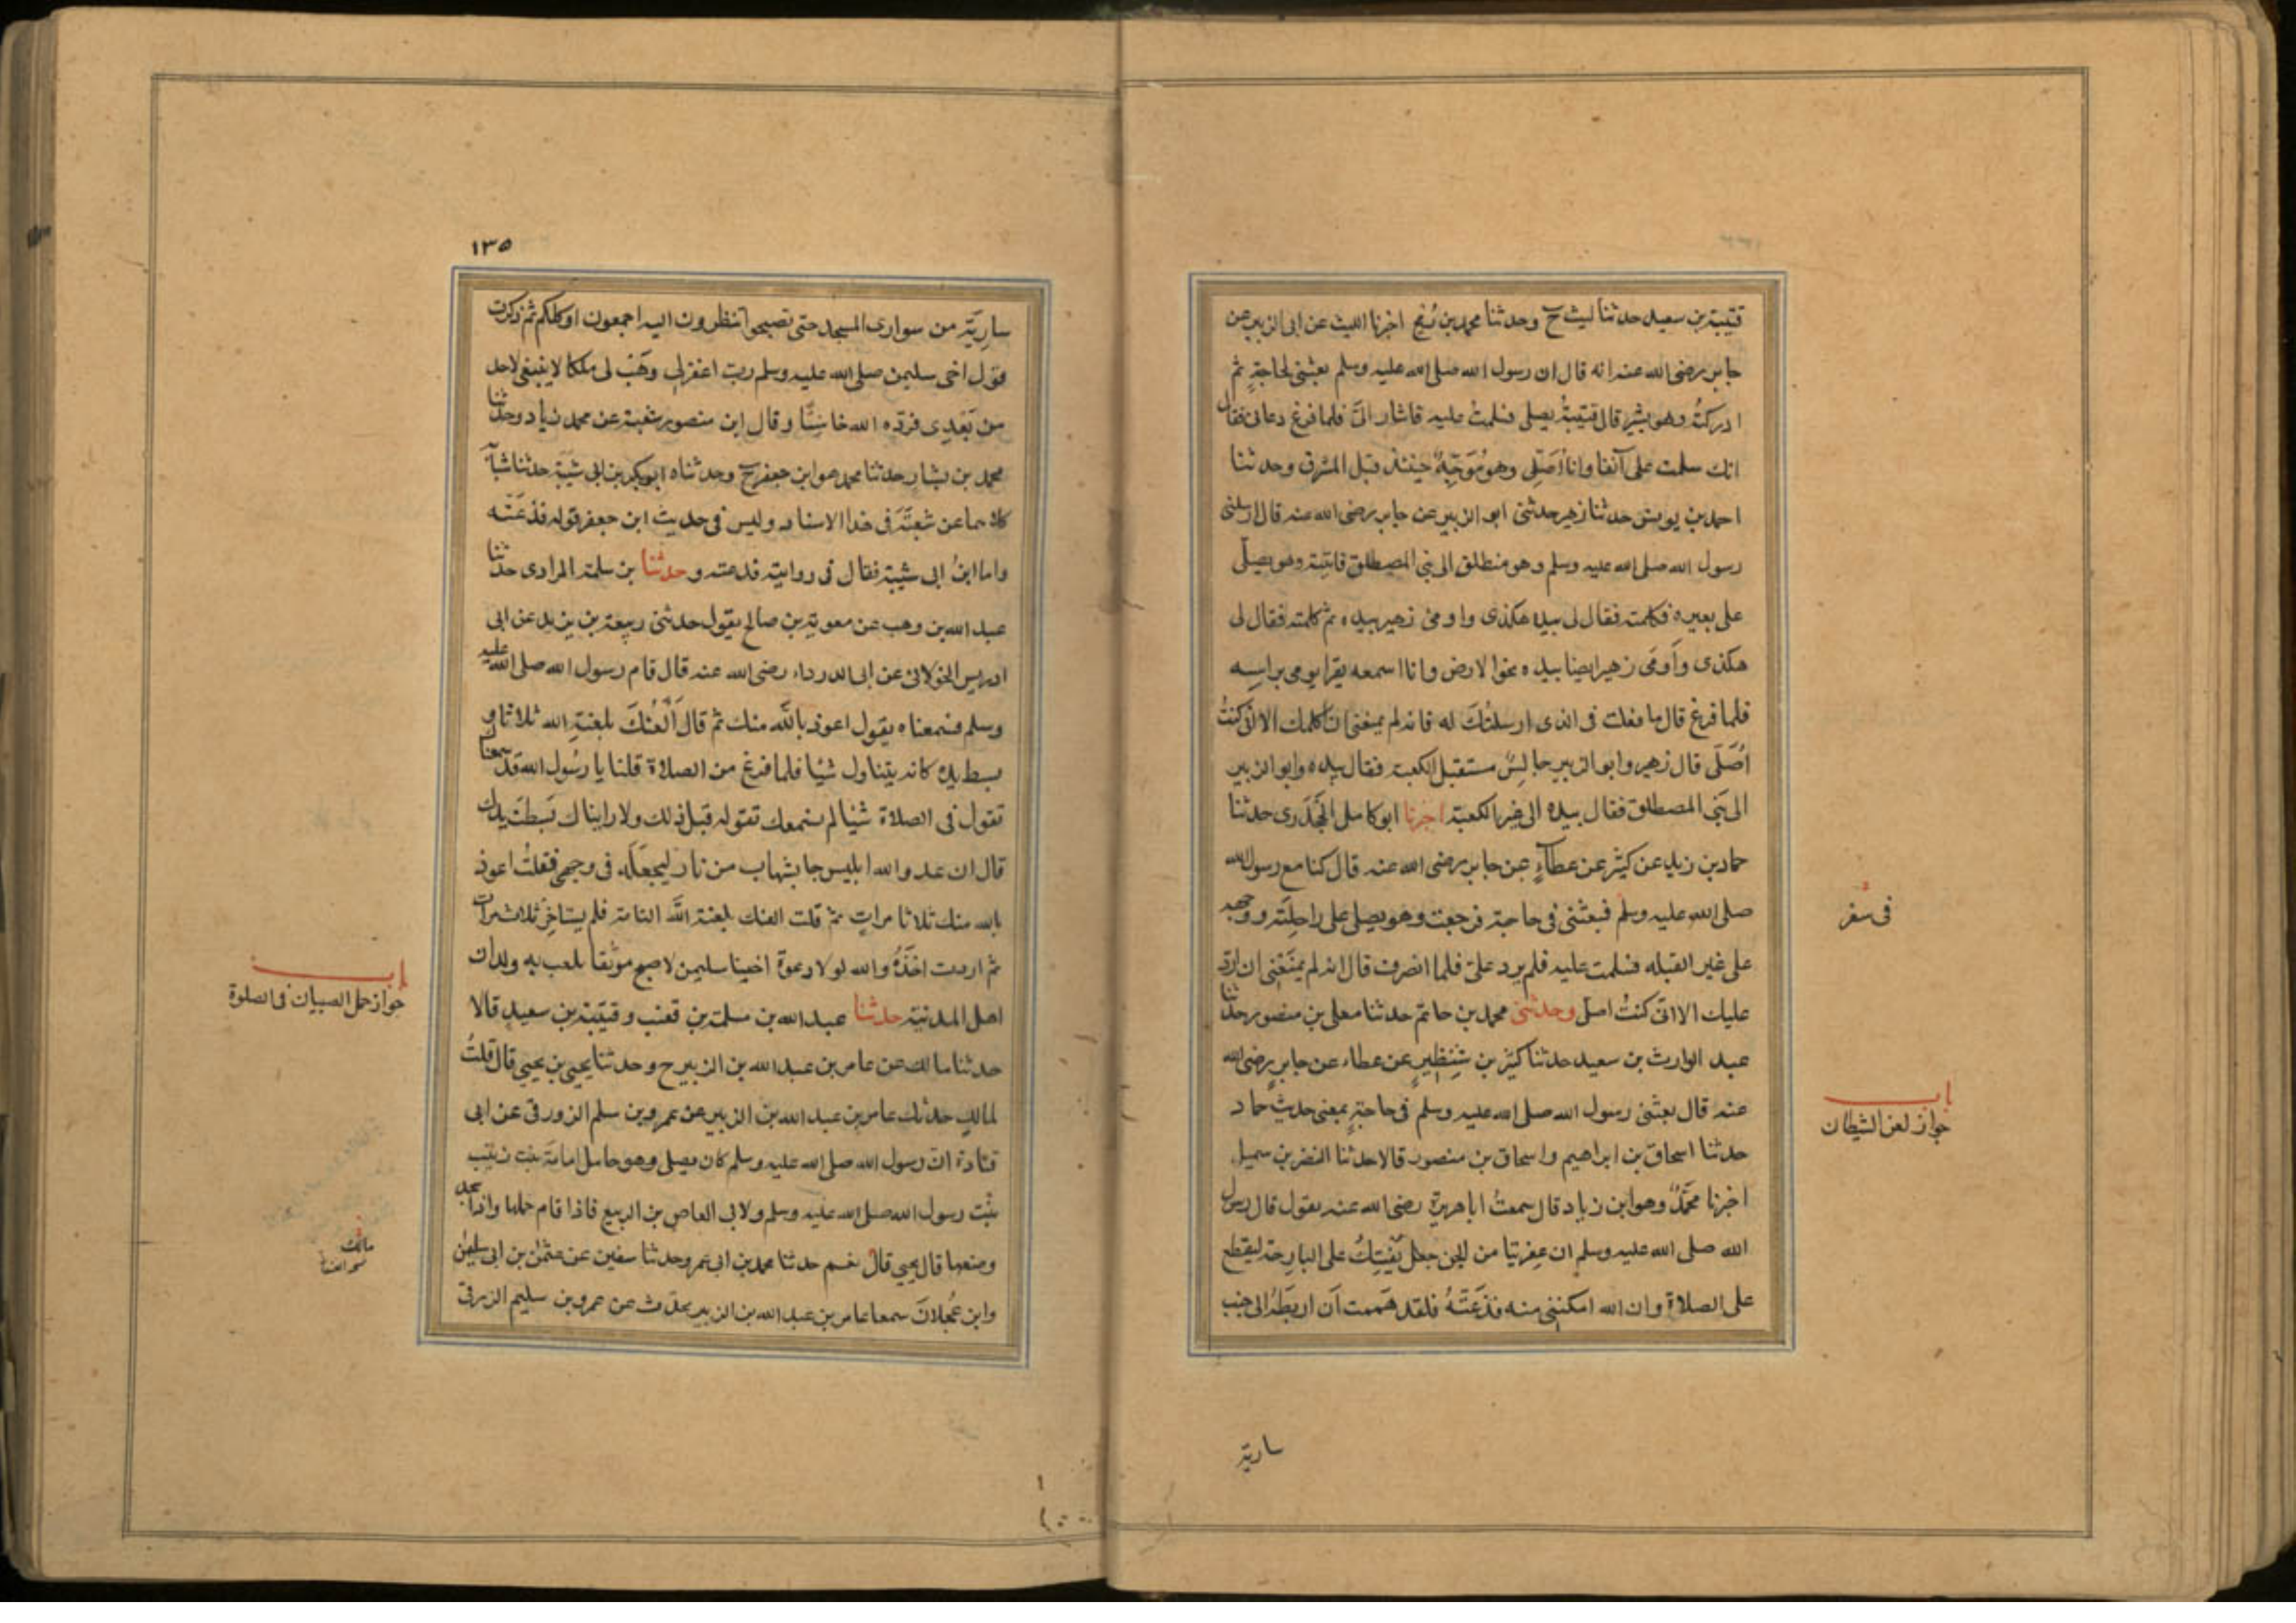 قتيبة بن سعيد حدثنا ليث ح وحدثنا محمد بن رُمح اخبرنا الليث عن ابى الزبير عن
جابر رضى الله عنه انه قال ان رسول الله صلى الله عليه وسلم بعثنى لحاجةٍ ثم
ادركتُه وهو يسير قال قتيبةُ يصلى فسلمتُ عليه فاشار الىَّ فلما فرغ دعانى فقال
انك سلمت علىَّ آنفا وانا اُصَلِّى وهو مُوَجِّهٌ حينئذ قبل المشرق وحدثنا
احمد بن يونس حدثنا زهير حدثنى ابو الزبير عن جابر رضى الله عنه قال ارسلنى
رسول الله صلى الله عليه وسلم وهو منطلق الى بنى المصطلق فاتيته وهو يصلّى
على بعيره فكلمته فقال لى بيده هكذى واومى زهير بيده ثم كلمته فقال لى
هكذى وَاَومَى زهير ايضا بيده نحو الارض وانا اسمعه يقرا يومى براسِه
فلما فرغ قال ما فعلت فى الذى ارسلتُكَ له فانه لم يمنعنى ان اكلمك الا انى كنتُ
اُصَلّى قال زهير وابو الزبير جالِسٌ مستقبل الكعبة فقال بيده وابو الزبير
الى بَنِى المصطلق فقال بيده الى غير الكعبة اخبرنا ابو كامل الجَحْدَرى حدثنا
حماد بن زيد عن كثير عن عطآءٍ عن جابر رضى الله عنه قال كنا مع رسول الله
صلى الله عليه وسلم فبعثنى فى حاجة فرجعت وهو يصلى على راحِلَته ووجهه
على غير القبله فسلمت عليه فلم يرد علىّ فلما انصرف قال انه لم يمنَعْنِى ان ارد
عليك الا انّى كنتُ اصلى وحدثنى محمد بن حاتم حدثنا معلى بن منصور حدثنا
عبد الوارث بن سعيد حدثنا كثير بن شِنْظِيرٍ عن عطاء عن جابرٍ رضى الله
عنه قال بعثنى رسول الله صلى الله عليه وسلم فى حاجةٍ بمعنى حديث حماد
حدثنا اسحاق بن ابراهيم واسحاق بن منصور قالا حدثنا النضر بن سميل
اخبرنا محَمَّدٌ وهو ابن زياد قال سمعتُ ابا هريرة رضى الله عنه يقول قال رسول
الله صلى الله عليه وسلم ان عِفريتا من الجن جعل يَفْتِكُ على البارحة ليقطع
على الصلاة وان الله امكننى منه فذَعَتُّهُ فلقد هَممت اَن اربطَهُ الى جنب
فى سفر
باب
جواز لعن الشيطان
سارية
١٣٥
سارِيَةٍ من سوارى المسجد حتى تصبحوا تنظرون اليه اجمعون او كلكم ثم ذكرت
قول اخى سليمن صلى الله عليه وسلم رب اغفر لى وهَب لى ملكا لا ينبغى لاحد
من بَعْدِى فردّه الله خاسِئًا وقال ابن منصور شعبة عن محمد بن زياد وحدثنا
محمد بن بشار حدثنا محمد هو ابن جعفر ح وحدثناه ابو بكر بن ابى شَيْبَة حدثنا شبابة
كلاهما عن شعبَةَ فى هذا الاسناد وليس فى حديث ابن جعفر قوله فذعَتّه
واما ابنُ ابى شيبة فقال فى روايته فدعته وحدثنا بن سلمة المرادى حدثنا
عبد الله بن وهب عن معوية بن صالح يقول حدثنى ربيعة بن يزيد عن ابى
ادريس الخولانى عن ابى الدرداء رضى الله عنه قال قام رسول الله صلى الله عليه
وسلم فسمعناه يقول اعوذ بالله منك ثم قال اَلْعنُكَ بلعنةِ الله ثلاثا و
بسط يده كانه يتناول شيئا فلما فرغ من الصلاة قلنا يا رسُول الله قد سمعناك
تقول فى الصلاة شيئا لم نسمعك تقوله قبل ذلك ولا رايناك بَسطتَ يدك
قال ان عدو الله ابليس جا بشهاب من نار ليجعَلَه فى وجهى فقلتُ اعوذ
بالله منك ثلاثا مراتٍ ثم قلت العنك بلعنة الله التامة فلم يستاخِر ثلاث مرات
ثم اردت اخذَهُ والله لولا دعوة اخينا سليمن لاصبح موثَقا يلعب به ولدان
اهل المدينة حدثنا عبد الله بن مسلمة بن قعنب وقتيبة بن سعيدٍ قالا
حدثنا مالك عن عامر بن عبد الله بن الزبير ح وحدثنا يحيى بن يحيى قال قلتُ
لمالكٍ حدثك عامر بن عبد الله بن الزبير عن عمرو بن سلم الزورقى عن ابى
قتادة انّ رسول الله صلى الله عليه وسلم كان يصلى وهو حامل امامَة بنت زينب
بنْت رسول الله صلى الله عليه وسلم ولابى العاص بن الربيع فاذا قام حملها واذا سجد
وضعها قال يحيى قال نعم حدثنا محمد بن ابى عمر وحدثنا سفين عن عثمن بن ابى سليمن
وابن عَجلانَ سمعا عامر بن عبد الله بن الزبير يحدّث عن عمرو بن سليم الزرقى
باب
جواز حمل الصبيان فى الصلوة
مالك